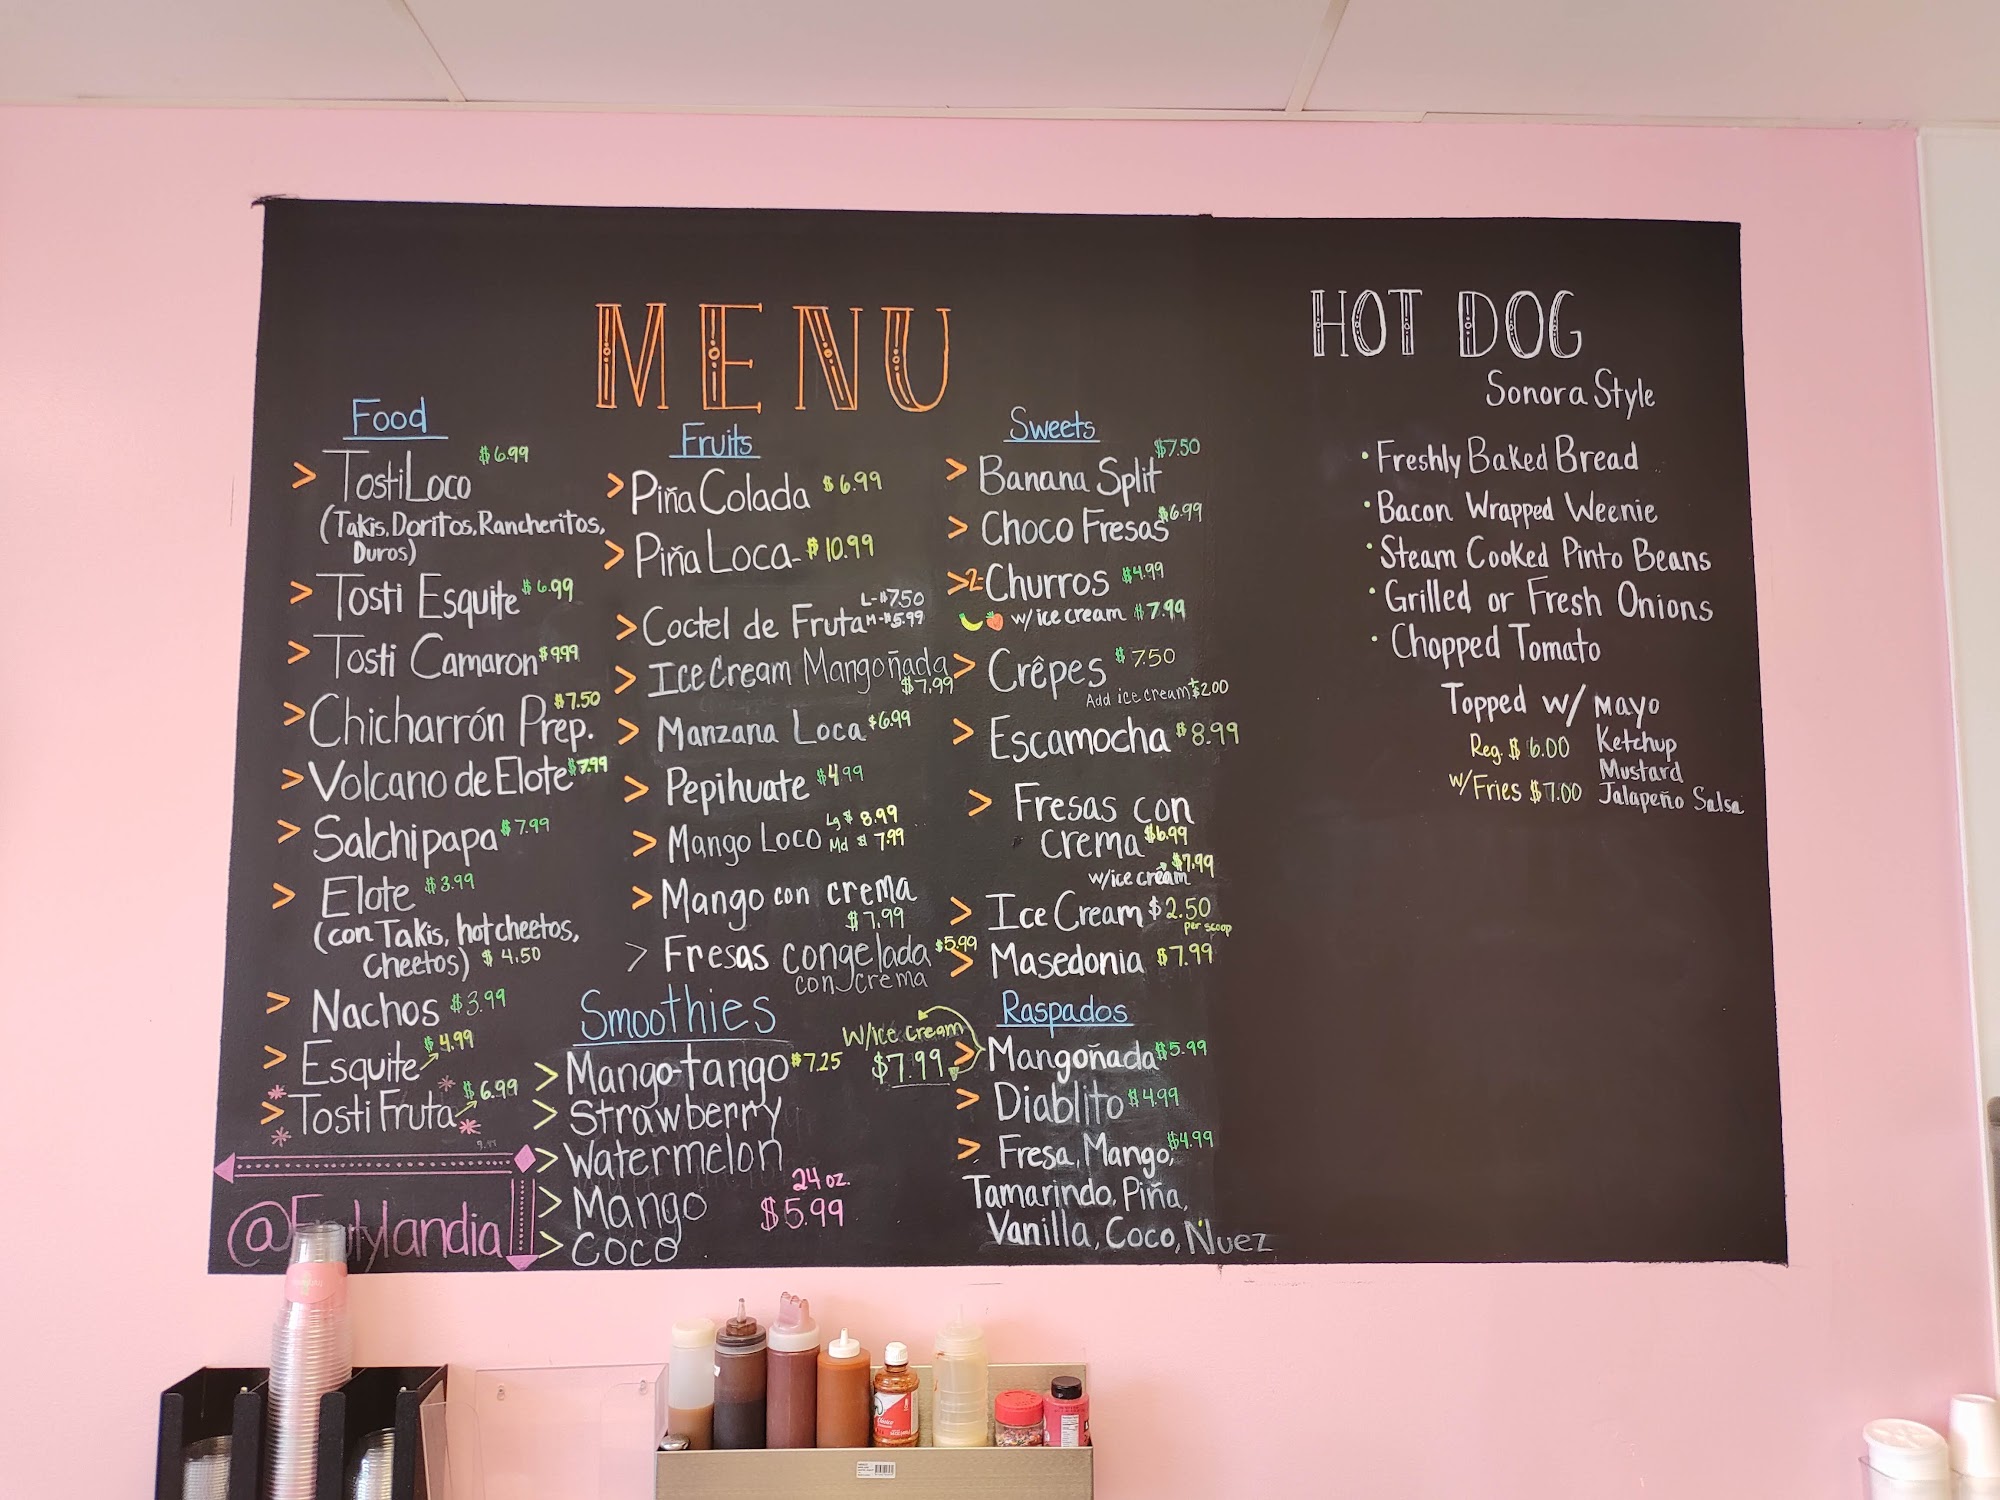 MENU
Food
TostiLoco $6.99
(Takis, Doritos, Rancheritos,
Duros)
Tosti Esquite $6.99
Tosti Camaron $9.99
Chicharrón Prep. $7.50
Volcano de Elote $7.99
Salchipapa $7.99
Elote $3.99
(con Takis, hot cheetos,
Cheetos) $4.50
Nachos $3.99
Esquite $4.99
Tosti Fruta $6.99
Fruits
Piña Colada $6.99
Piña Loca- $10.99
Coctel de Fruta L-$7.50
M-$5.99
Ice Cream Mangoñada
$7.99
Manzana Loca $6.99
Pepihuate $4.99
Mango Loco Lg $8.99
Md $7.99
Mango con crema
$7.99
Fresas congelada $5.99
con crema
Smoothies
Mango-tango $7.25
Strawberry
Watermelon
Mango
Coco
24 oz.
$5.99
Sweets
Banana Split $7.50
Choco Fresas $6.99
2-Churros $4.99
w/ice cream $7.99
Crêpes $7.50
Add ice cream +$2.00
Escamocha $8.99
Fresas con
crema $6.99
w/ice cream $7.99
Ice Cream $2.50
per scoop
Masedonia $7.99
Raspados
Mangoñada $5.99
w/ice cream
$7.99
Diablito $4.99
Fresa, Mango, $4.99
Tamarindo, Piña,
Vanilla, Coco, Nuez
HOT DOG
Sonora Style
• Freshly Baked Bread
• Bacon Wrapped Weenie
• Steam Cooked Pinto Beans
• Grilled or Fresh Onions
• Chopped Tomato
Topped w/ Mayo
Ketchup
Mustard
Jalapeño Salsa
Reg. $6.00
w/Fries $7.00